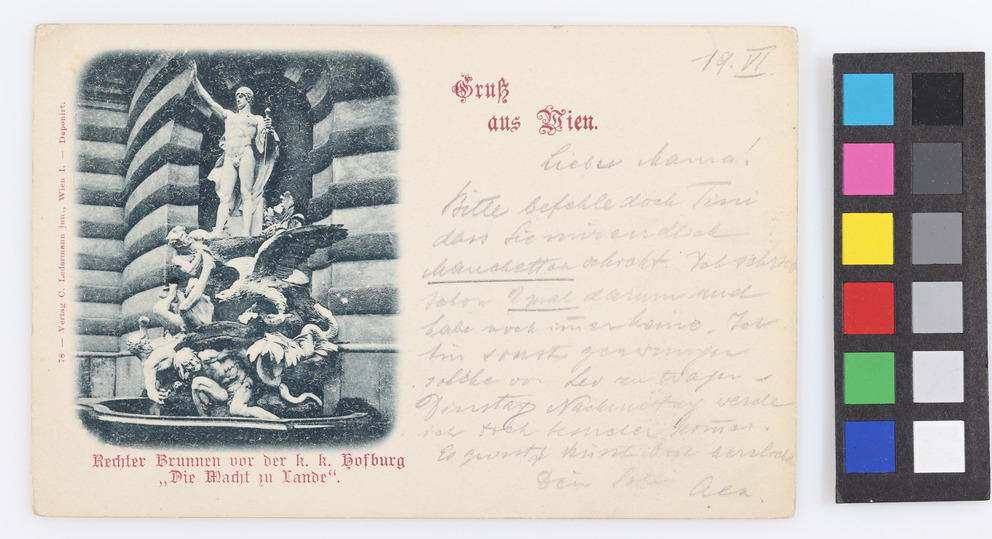 19. VI.
Gruß
aus Wien.
Liebe Mama!
Bitte befehle doch Timi
dass Sie mir endlich
Manchetten schickt. Ich
schon 2 mal darum und
habe noch immer keine. Ich
bin sonst gezwungen
solche von Leo zu tragen
Dienstag Nachmittag werde
ich doch kommen.
Es grüsst küsst Dich herzlich
Dein
78 — Verlag C. Ledermann jun., Wien I. — Deponirt.
Rechter Brunnen vor der k. k. Hofburg
„Die Macht zu Lande“.